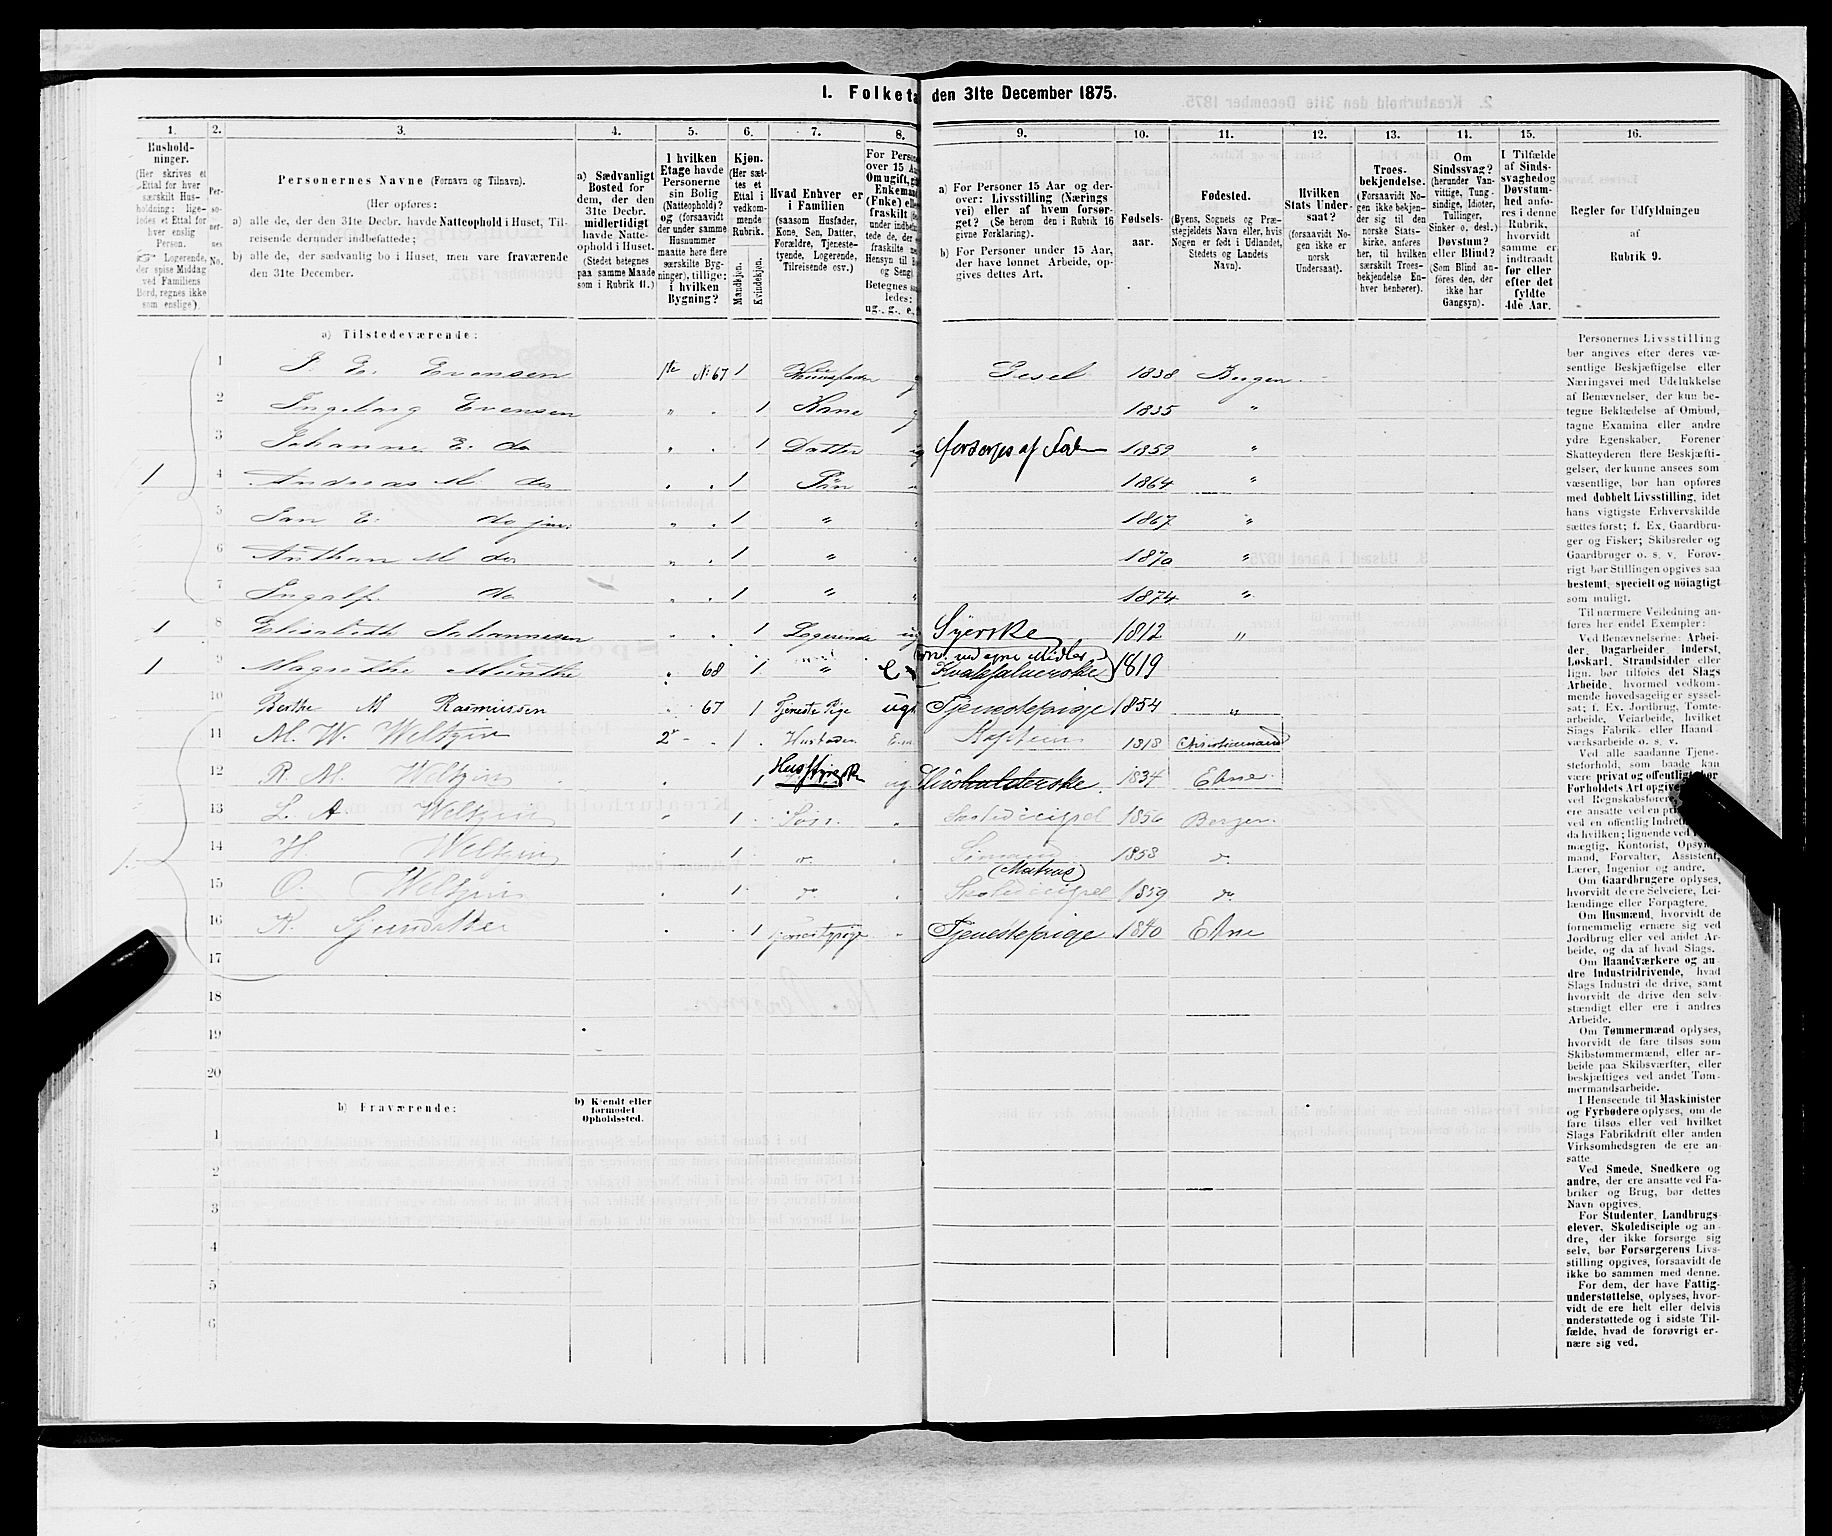 1. Folketa den 31te December 1875.
1. 2. 3. 4. 5. 6. 7. 8. 9. 10. 11. 12. 13. 14. 15. 16.
Hushold-
ninger.
(Her skrives et
Ettal for hver
særskilt Hus-
holdning; lige-
ledes et Ettal for
hver enslig
Person.
Logerende,
der spise Middag
ved Familiens
Bord, regnes ikke
som enslige)
Per-
so-
ner-
nes
No.
Personernes Navne (Fornavn og Tilnavn).
(Her opføres:
a) alle de, der den 31te Decbr. havde Natteophold i Huset, Til-
reisende derunder indbefattede;
b) alle de, der sædvanlig bo i Huset, men vare fraværende
den 31te December.
a) Sædvanligt
Bosted for
dem, der den
31te Decbr.
midlertidigt
havde Natte-
ophold i Huset.
(Stedet betegnes
paa samme Maade
som i Rubrik 11.)
I hvilken
Etage havde
Personerne
sin Bolig
(Natteophold)?
og (forsaavidt
der under samme
Husnummer
maatte høre flere
særskilte Byg-
ninger), tillige:
i hvilken
Bygning?
Kjøn.
(Her sæt-
tes et
Ettal i
vedkom-
mende
Rubrik.
Mandkjøn.
Kvindekjøn.
Hvad Enhver er
i Familien
(saasom Husfader,
Kone, Søn, Datter,
Forældre, Tjeneste-
tyende, Logerende,
Tilreisende osv.)
For Person
over 15 Aa
Om ugift, g
Enkeman
(Enke) elle
fraskilt
Betegnes s
ledes:
ug., g., e.,
a) For Personer 15 Aar og der-
over: Livsstilling (Nærings
vei) eller af hvem forsør-
get? (Se herom den i Rubrik 16
givne Forklaring).
b) For Personer under 15 Aar,
der have lønnet Arbeide, op-
gives dettes Art.
Fødsels-
aar.
Fødested.
(Byens, Sognets og Præ-
stegjeldets Navn eller, hvis
Nogen er født i Udlandet,
Stedets og Landets
Navn).
Hvilken
Stats Under-
saat?
(forsaavidt No-
gen ikke er
norsk
Undersaat).
Troes-
bekjendelse.
(Forsaavidt No-
gen ikke bekjen-
der sig til den
norske Stats-
kirke, anføres
her, til hvilken
særskilt Troes-
bekjendelse En-
hver henhører).
Om
Sindssvag?
(herunder Van-
vittige, Tung-
sindige, Idioter,
Tullinger,
Sinker o. desl.)
Døvstum?
eller Blind?
(Som Blind an-
føres den, der
ikke har
Gangsyn).
I Tilfælde
af Sinds-
svaghed og
Døvstum-
hed anfø-
res i denne
Rubrik,
hvorvidt
samme er
indtraadt
før eller
efter det
fyldte
4de Aar.
Regler for Udfyldningen
af
Rubrik 9.
a) Tilstedeværende:
1 J. E. Evensen 1te No 67 1 Huusfader g 1838 Bergen
2 Ingeborg Evensen " . 1 Kone g 1835 "
3 Johanne E. do " . 1 Datter ug forsørges af Fad 1859 "
1 4 Andreas M. do . . 1 Søn 1864 "
5 Jan E. do jun. " . 1 " 1867 "
6 Anthon M do " . 1 " 1870 "
7 Ingolf do " . 1 " 1874 "
1 8 Elisabeth Johannesen " . 1 Logerende ug Syerske 1812 "
1 9 Magrethe Munthe . 68 1 " e ved egne Midler 1819
10 Berthe M Rasmussen . 67 1 Tjeneste Pige ug Tjenestepige 1854 "
11 M. W. Weltzin 2r - . 1 1818 Christiansand
12 R. M. Weltzin . 1 Husstyrerske ug Huusholderske 1834 Etne
13 L. A. Weltzin " . 1 Søn " Skoledicipel 1856 Bergen
1. 14 H. Weltzin . . 1 do . Sømand (Matros) 1858 do
15 O. Weltzin . . 1 do . Skoledicipel 1859 do
16 K. . . 1 Tjenestepige " Tjenestepige 1840 Etne
17
18
19
20
b) Fraværende:
b) Kjendt eller
formodet
Opholdssted.
1
2
3
4
5
6
Personernes Livsstilling
bør angives efter deres væ-
sentlige Beskjæftigelse eller
Næringsvei med Udelukkelse
af Benævnelser, der kun be-
tegne Beklædelse af Ombud,
tagne Examina eller andre
ydre Egenskaber. Forener
Skatteyderen flere Beskjæfti-
gelser, der kunne ansees som
væsentlige, bør han opføres
med dobbelt Livsstilling, idet
hans vigtigste Erhvervskilde
sættes først; f. Ex. Gaardbru-
ger og Fisker; Skibsreder og
Gaardbruger o. s. v. Forøv-
rigt bør Stillingen opgives saa
bestemt, specielt og nøiagtigt
som muligt.
Til nærmere Veiledning an-
føres her endel Exempler:
Ved Benævnelserne: Arbei-
der, Dagarbeider, Inderst,
Løskarl, Strandsidder eller
lign. bør tilføies det Slags
Arbeide, hvormed vedkom-
mende hovedsagelig er syssel-
sat; f. Ex. Jordbrug, Tomte-
arbeide, Veiarbeide, hvilket
Slags Fabrik- eller Haand
værksarbeide o. s. v.
Ved alle saadanne Tjene-
steforhold, som baade kan
være privat og offentligt, bør
Forholdets Art opgives,
ved Regnskabsføre
ere ansatte ved en pri
ved en offentlig Indret
da hvilken; lignende ved
mægtig, Kontorist, Opsyns
mand, Forvalter, Assistent,
Lærer, Ingeniør og andre.
Om Gaardbrugere oplyses,
hvorvidt de ere Selveiere, Lei-
lændinge eller Forpagtere.
Om Husmænd, hvorvidt de
fornemmelig ernære sig ved
Jordbrug eller ved andet Ar-
beide, og da af hvad Slags.
Om Haandværkere og an-
dre Industridrivende, hvad
Slags Industri de drive, samt
hvorvidt de drive den selv-
stændigt eller ere i andres
Arbeide.
Om Tømmermænd oplyses,
hvorvidt de fare tilsøs som
Skibstømmermænd, eller ar-
beide paa Skibsværfter, eller
beskjæftiges ved andet Tøm-
mermandsarbeide.
I Henseende til Maskinister
og Fyrbødere oplyses, om de
fare tilsøs eller ved hvilket
Slags Fabrikdrift eller anden
Virksomhedsgren de ere an-
satte.
Ved Smede, Snedkere og
andre, der ere ansatte ved Fa-
briker og Brug, bør dettes
Navn opgives.
For Studenter, Landbrugs-
elever, Skoledisciple og an-
dre, der ikke forsørge sig
selv, bør Forsørgerens Livs-
stilling opgives, forsaavidt de
ikke bo sammen med denne.
For dem, der have Fattig-
understøttelse, oplyses, hvor-
vidt de ere helt eller delvis
understøttede og i sidste Til-
fælde, hvad de forøvrigt er-
nære sig ved.